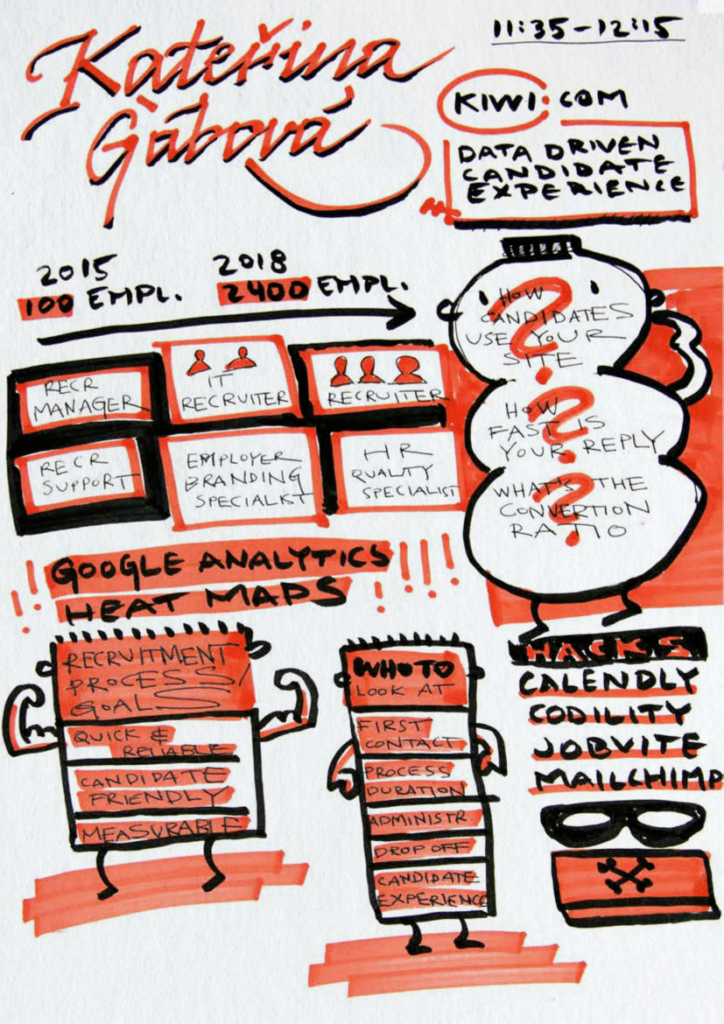 11:35-12:15
Kateřina
Gábová
KIWI.COM
DATA DRIVEN
CANDIDATE
EXPERIENCE
2015
100 EMPL.
2018
2400 EMPL.
RECR
MANAGER
IT
RECRUITER
RECRUITER
RECR
SUPPORT
EMPLOYER
BRANDING
SPECIALIST
HR
QUALITY
SPECIALIST
?
HOW
CANDIDATES
USE YOUR
SITE
?
HOW
FAST IS
YOUR REPLY
?
WHAT'S THE
CONVERTION
RATIO
!! GOOGLE ANALYTICS !!!!!
HEAT MAPS
RECRUITMENT
PROCESS/
GOALS
QUICK &
RELIABLE
CANDIDATE
FRIENDLY
MEASURABLE
WHO TO
LOOK AT
FIRST
CONTACT
PROCESS
DURATION
ADMINISTR.
DROP OFF
CANDIDATE
EXPERIENCE
HACKS
CALENDLY
CODILITY
JOBVITE
MAILCHIMP